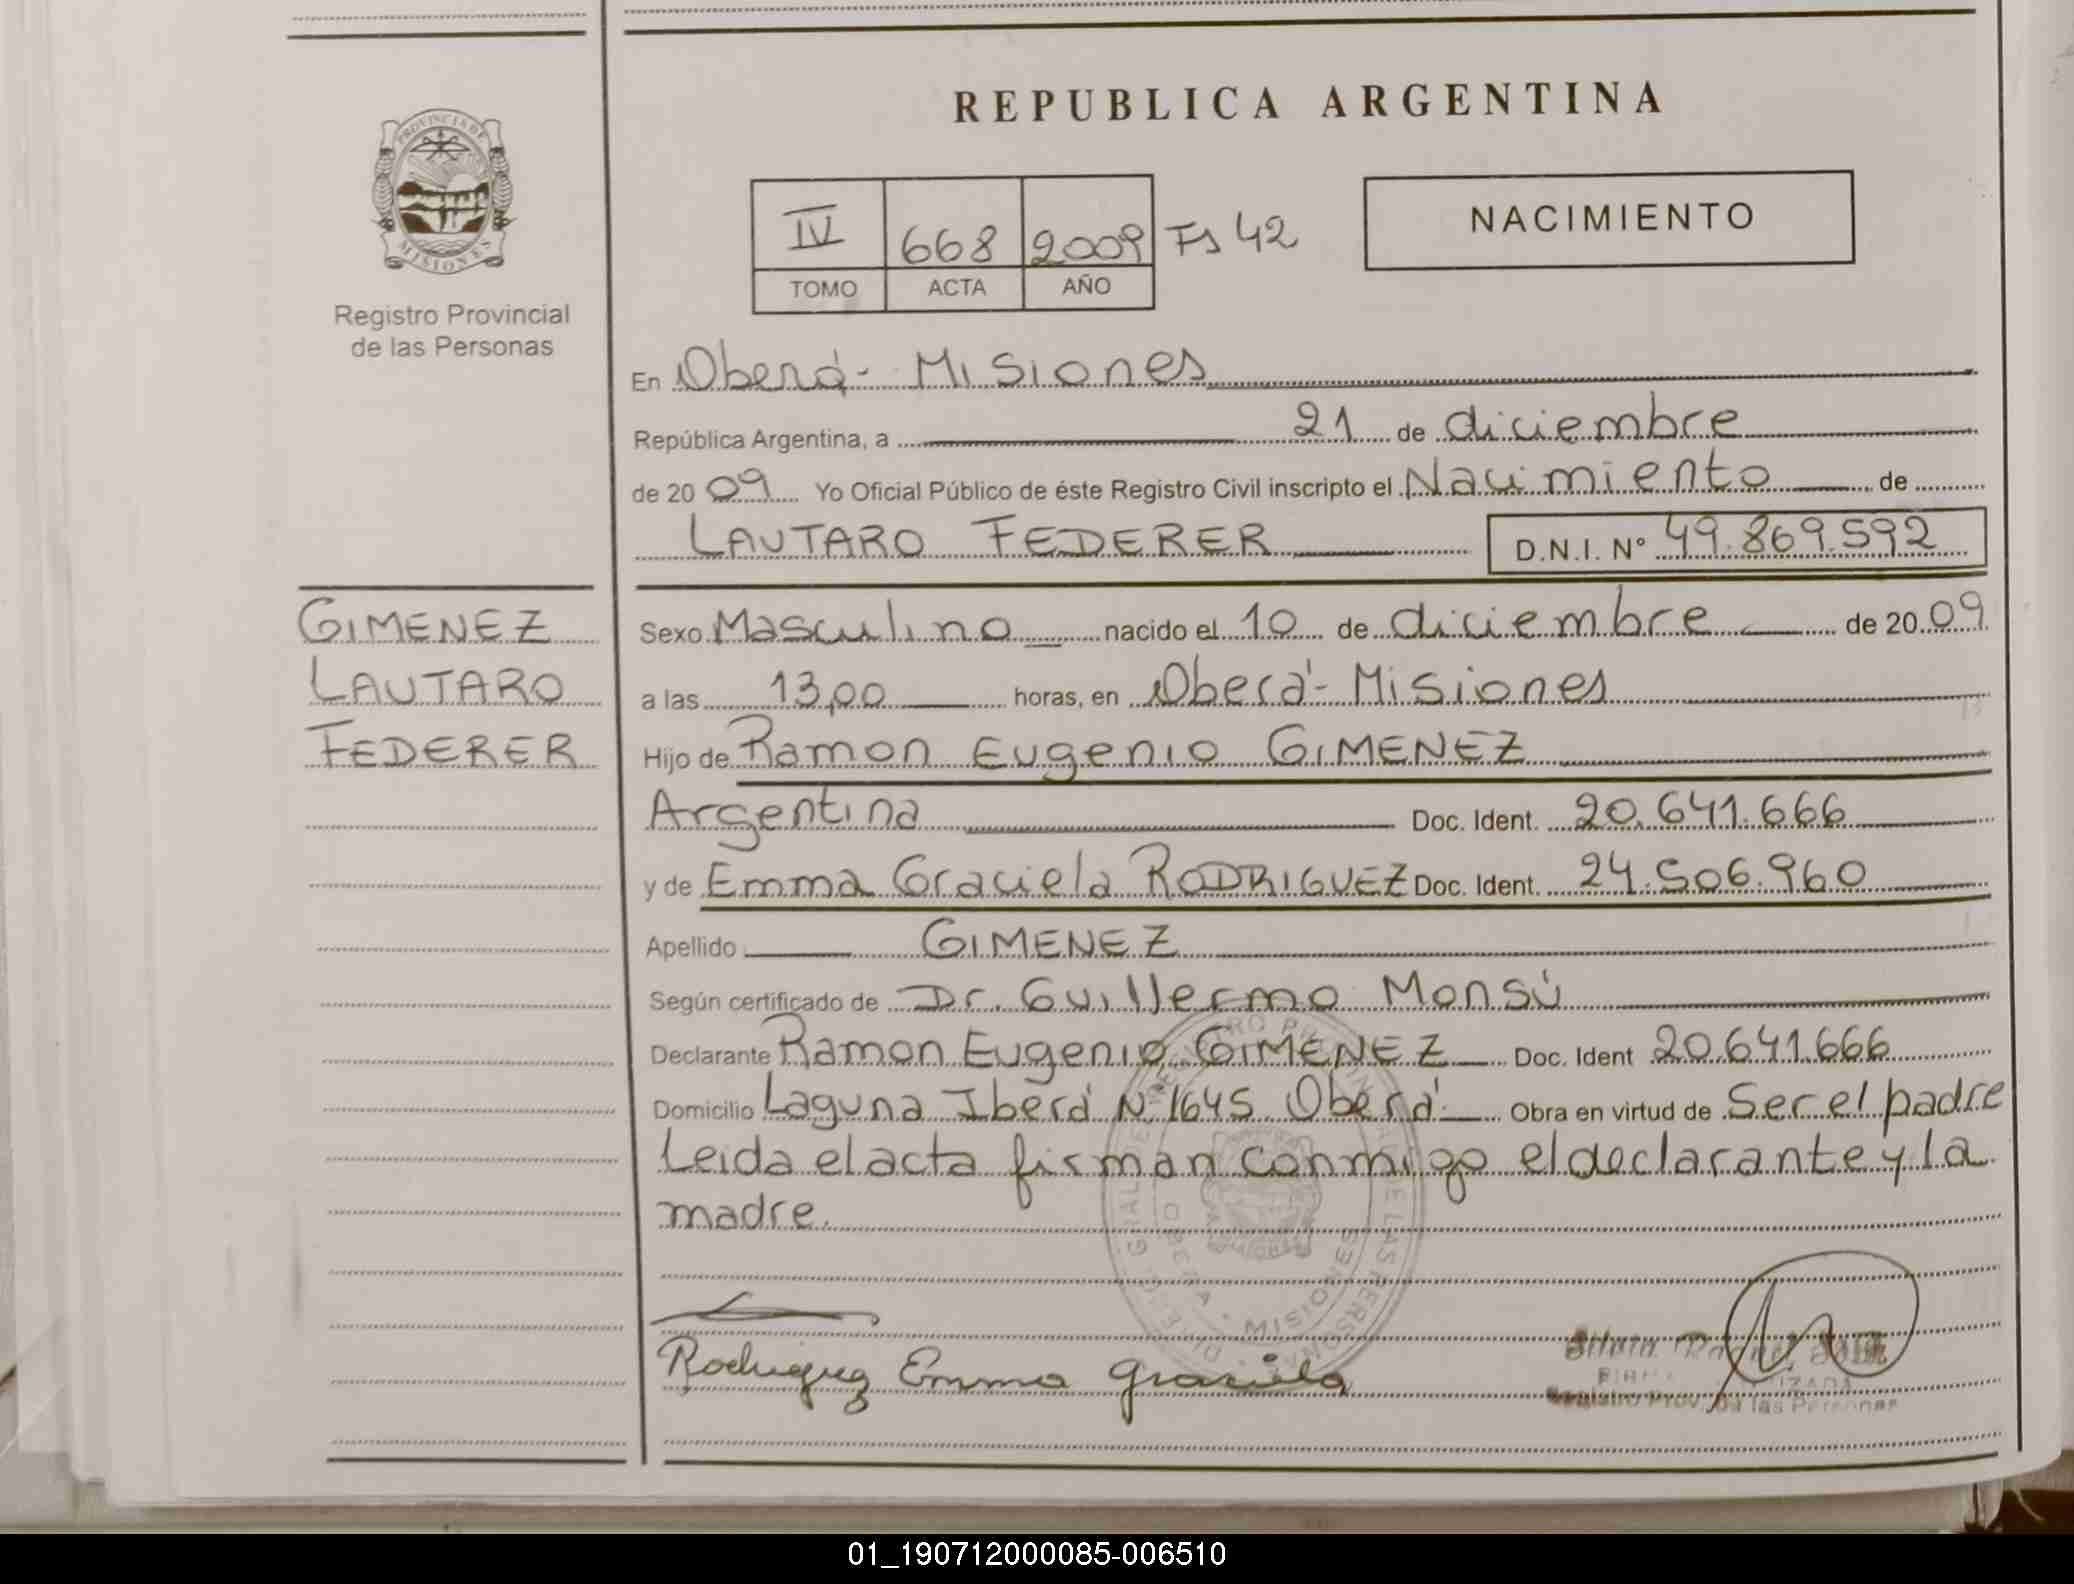 REPUBLICA ARGENTINA
PROVINCIA DE
MISIONES
Registro Provincial
de las Personas
IV 668 2009 Fs 42
TOMO ACTA AÑO
NACIMIENTO
En Oberá - Misiones
República Argentina, a 21 de diciembre
de 2009 Yo Oficial Público de éste Registro Civil inscripto el Nacimiento de
LAUTARO FEDERER D.N.I. Nº 49.869.592
GIMENEZ
LAUTARO
FEDERER
Sexo Masculino nacido el 10 de diciembre de 2009
a las 13,00 horas, en Oberá - Misiones
Hijo de Ramon Eugenio GIMENEZ
Argentina Doc. Ident. 20.641.666
y de Emma Graciela RODRIGUEZ Doc. Ident. 24.506.960
Apellido GIMENEZ
Según certificado de Dr. Guillermo Monsú
Declarante Ramon Eugenio GIMENEZ Doc. Ident 20.641.666
Domicilio Laguna Iberá Nº 1645 Oberá Obra en virtud de Ser el padre
Leida el acta firman conmigo el declarante y la
madre.
OBERA - MISIONES
Rodriguez Emma Graciela
Registro Prov. de las Personas
01_190712000085-006510